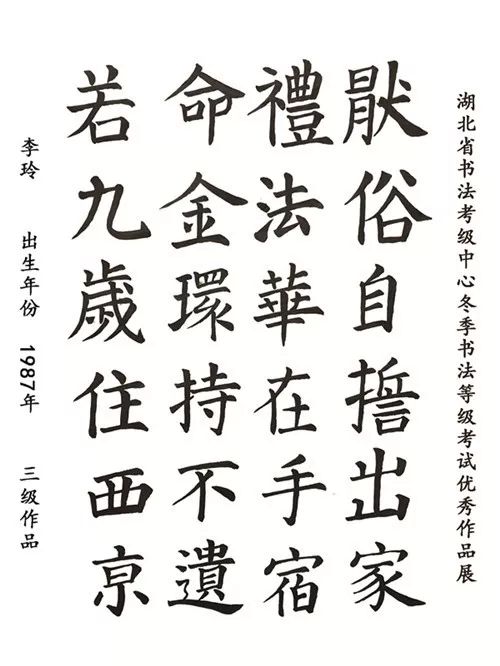 湖北省书法考级中心冬季书法等级考试优秀作品展
猒俗自誓出家
禮法華在手宿
命金環持不遺
若九歲住西京
李玲 出生年份 1987年 三级作品